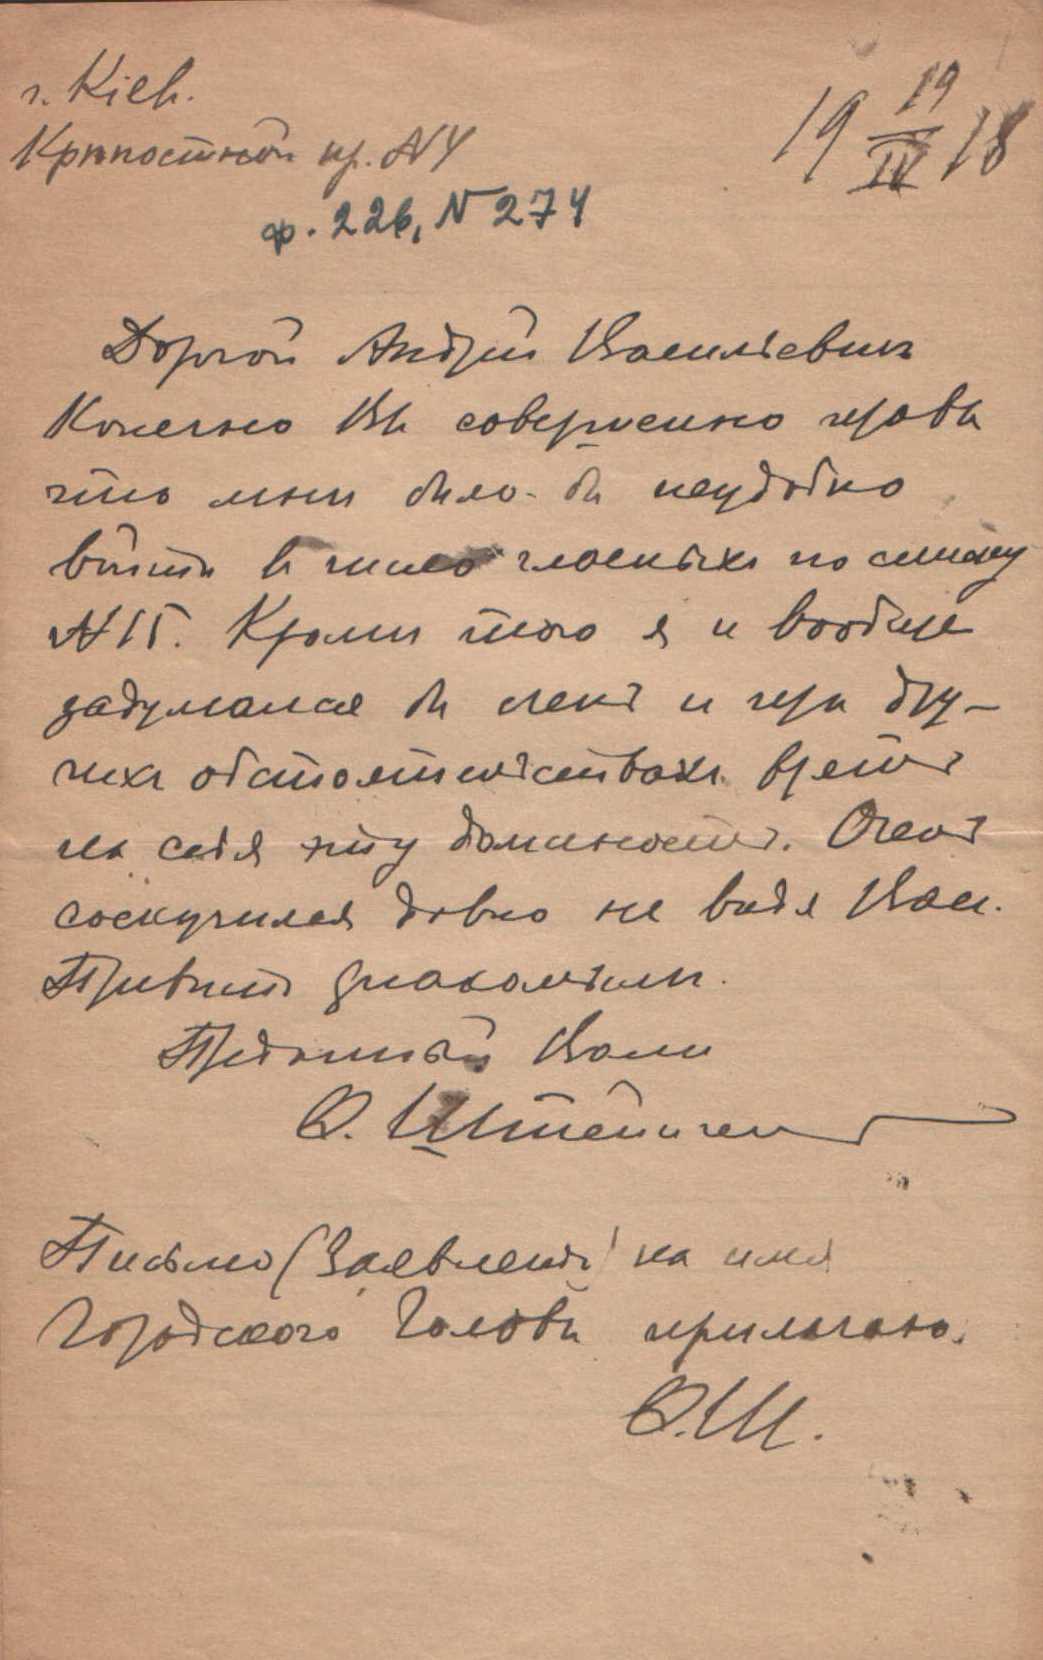 г. Кіевъ.
Крѣпостной пр. №4
19 19/IV 18
ф. 226, N 274
Дорогой Андрей Васильевичъ
Конечно Вы совершенно правы
что мнѣ было-бы неудобно
войти въ число гласныхъ по списку
№ 15. Кромѣ того я и вообще
задумался бы очень и при дру-
гихъ обстоятельствахъ взять
на себя эту должность. Очень
соскучился давно не видя Васъ.
Привѣтъ знакомымъ.
Преданный Вамъ
Ѳ. Штейнгель
Письмо (Заявленіе) на имя
Городского Головы прилагаю.
Ѳ.Ш.